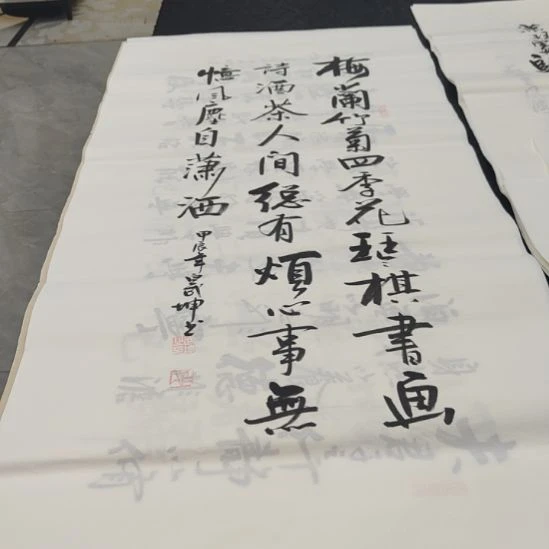 梅蘭竹菊四季花琴棋書画
詩酒茶人間総有煩心事無
憶風塵自瀟洒
甲辰年
坤书